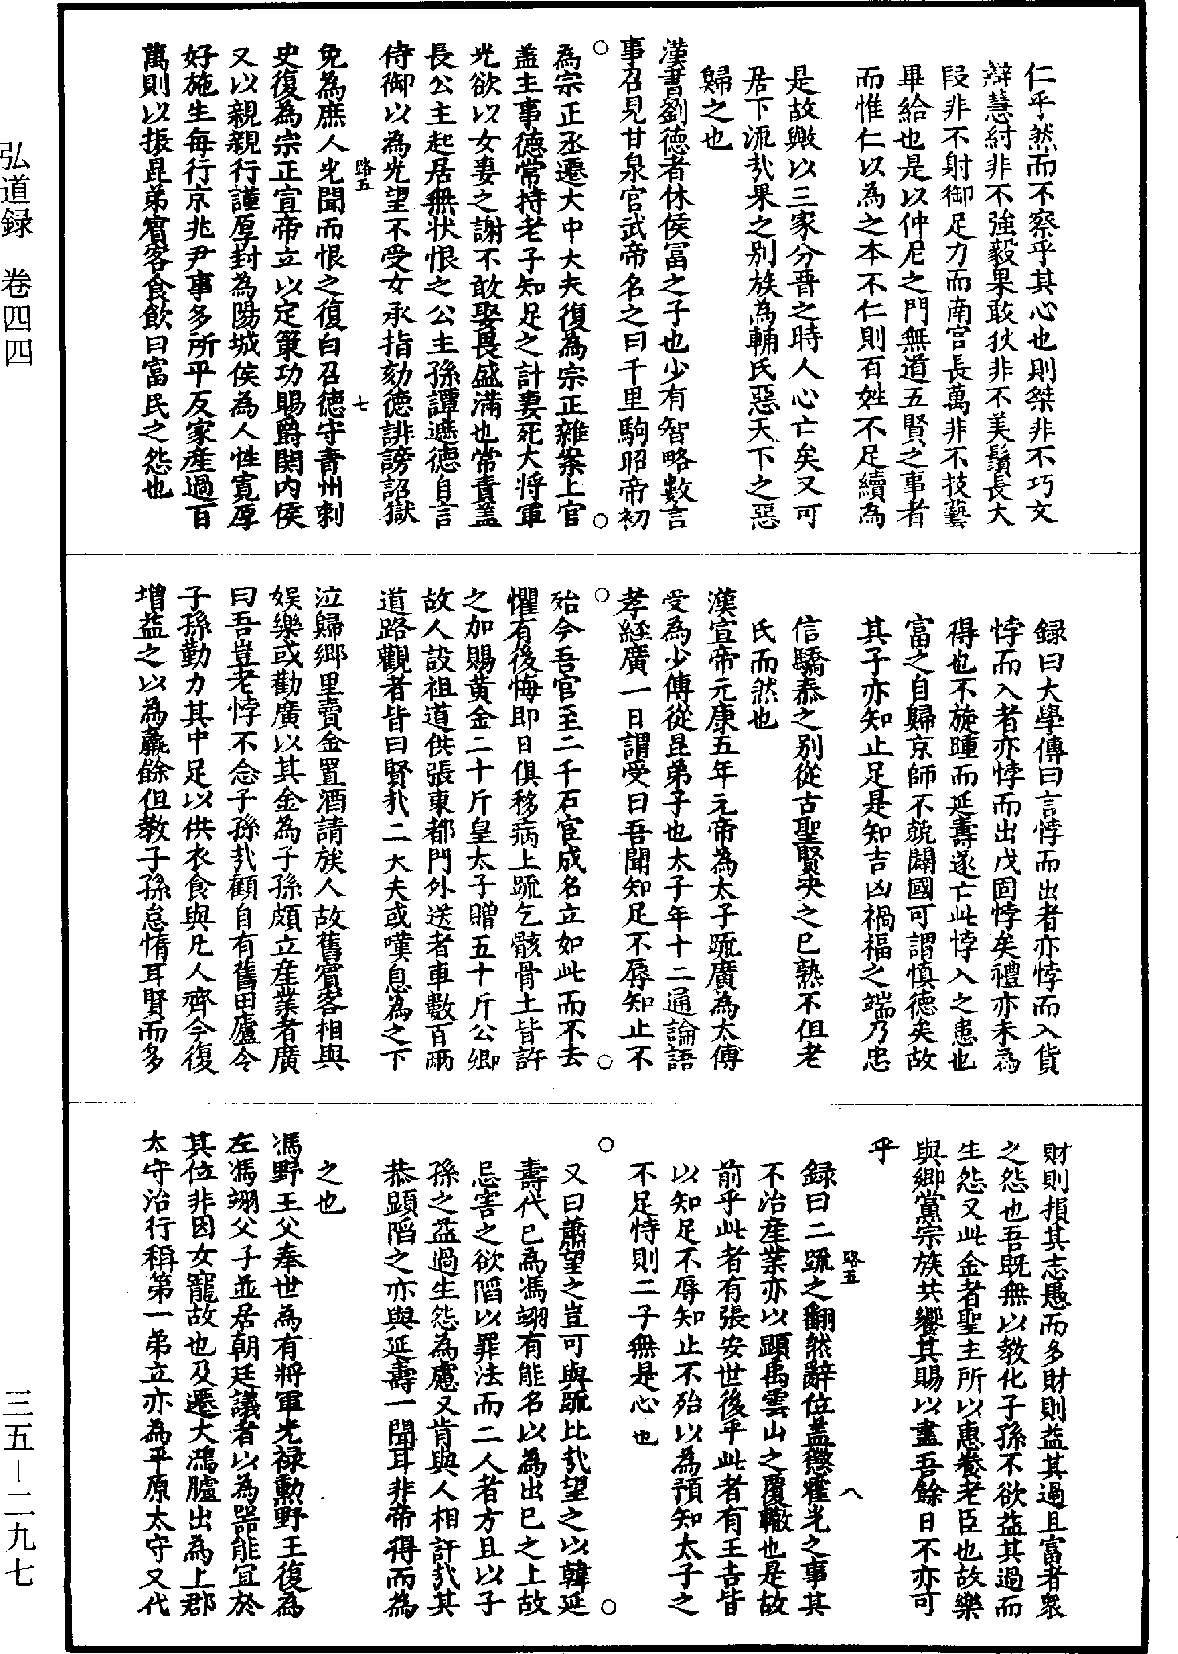 弘道録　卷四四
仁乎然而不察乎其心也則桀非不巧文
辯慧紂非不強毅果敢狄非不美鬚長大
段非不射御足力而南宫長萬非不技藝
畢給也是以仲尼之門無道五賢之事者
而惟仁以為之本不仁則百姓不足續為
是故歟以三家分晉之時人心亡矣又可
居下流㢤果之别族為輔氏惡天下之惡
歸之也
漢書劉德者休侯冨之子也少有智略數言
事召見甘泉宫武帝名之曰千里駒昭帝初
○　○
為宗正丞遷大中大夫復為宗正雜案上官
盖主事德常持老子知足之計妻死大將軍
光欲以女妻之謝不敢娶畏盛滿也常責盖
長公主起居無状恨之公主孫譚遮德自言
侍御以為光望不受女承指劾德誹謗詔獄
路五　七
免為庶人光聞而恨之復白召德守青州刺
史復為宗正宣帝立以定策功賜爵関内侯
又以親親行謹厚封為陽城侯為人性寛厚
好施生每行京兆尹事多所平反家産過百
萬則以振昆弟賓客食飲曰富民之怨也
録曰大學傳曰言悖而出者亦悖而入貨
悖而入者亦悖而出戊固悖矣禮亦未為
得也不旋踵而延壽遂亡此悖入之患也
富之自歸京師不就闢國可謂慎德矣故
其子亦知止足是知吉凶禍福之端乃忠
信驕泰之别從古聖賢决之已熟不但老
氏而然也
漢宣帝元康五年元帝為太子疏廣為太傅
受為少傅從昆弟子也太子年十二通論語
孝經廣一日謂受曰吾聞知足不辱知止不
○　○
殆今吾官至二千石宦成名立如此而不去
懼有後悔即日俱移病上疏乞骸骨土皆許
之加賜黄金二十斤皇太子贈五十斤公卿
故人設祖道供張東都門外送者車數百兩
道路觀者皆曰賢㢤二大夫或嘆息為之下
泣歸鄉里賣金置酒請族人故舊賓客相與
娯樂或勸廣以其金為子孫頗立産業者廣
曰吾豈老悖不念子孫㢤顧自有舊田廬令
子孫勤力其中足以供衣食與凡人齊今復
増益之以為贏餘但教子孫怠惰耳賢而多
財則損其志愚而多財則益其過且富者衆
之怨也吾既無以教化子孫不欲益其過而
生怨又此金者聖主所以惠養老臣也故樂
與鄉黨宗族共饗其賜以盡吾餘日不亦可
乎
路五　八
録曰二疏之翻然辭位蓋懲霍光之事其
不治産業亦以顯禹雲山之覆轍也是故
前乎此者有張安世後乎此者有王吉皆
以知足不辱知止不殆以為預知太子之
不足恃則二子無是心也
○　○
又曰蕭望之豈可與疏比㢤望之以韓延
壽代已為馮翊有能名以為出已之上故
忌害之欲陷以罪法而二人者方且以子
孫之益過生怨為慮又肯與人相訐㢤其
恭顯陷之亦與延壽一間耳非帝得而為
之也
馮野王父奉世為有將軍光禄勲野王復為
左馮翊父子並居朝廷議者以為器能宜於
其位非因女寵故也及遷大鴻臚出為上郡
太守治行稱第一弟立亦為平原太守又代
三五—二九七